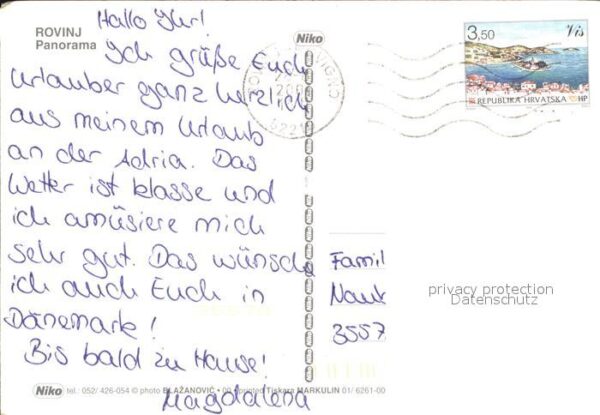 ROVINJ
Panorama
Niko
Hallo Ihr!
Ich grüße Euch
Urlauber ganz herzlich
aus meinem Urlaub
an der Adria. Das
Wetter ist klasse und
ich amüsiere mich
sehr gut. Das wünsche
ich auch Euch in
Dänemark!
Bis bald zu Hause!
Magdalena
3,50
Vis
REPUBLIKA HRVATSKA HP
Famil
3557
privacy protection
Datenschutz
Niko tel.: 052/ 426-054 © photo BLAŽANOVIĆ • printed Tiskara MARKULIN 01/ 6261-00
Niko